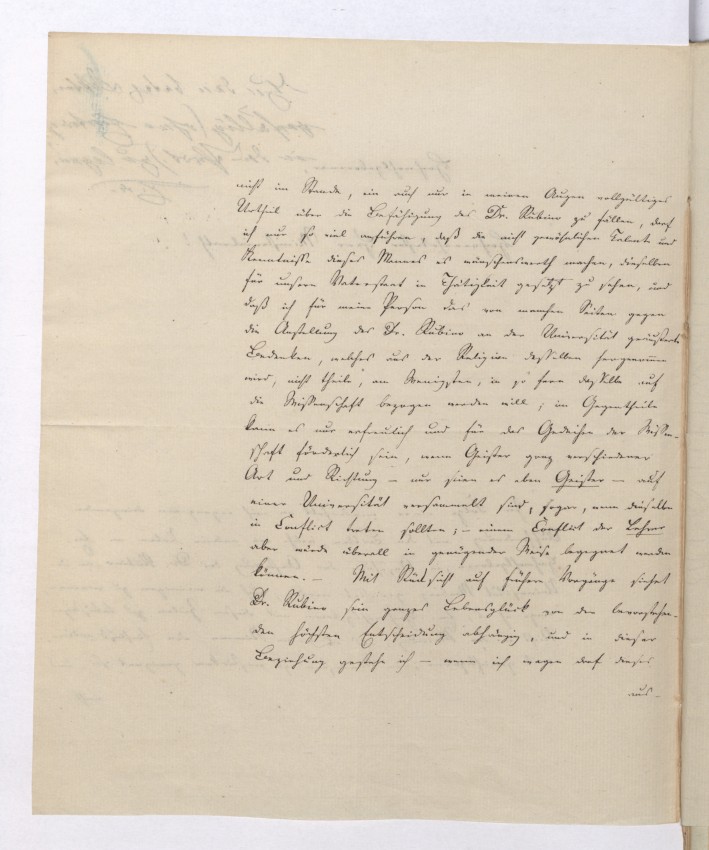 nicht im Stande, ein auch nur in meinen Augen vollgültiges
Urtheil über die Befähigung des Dr. Rubino zu fällen, darf
ich nur so viel anführen, daß die nicht gewöhnlichen Talente und
Kenntnisse dieses Mannes es wünschenswerth machen, dieselben
für unsern Vaterstaat in Thätigkeit gesetzt zu sehen, und
daß ich für meine Person das von manchen Seiten gegen
die Anstellung des Dr. Rubino an der Universität geäußerte
Bedenken, welches aus der Religion desselben hergenommen
wird, nicht theile, am Wenigsten, in so fern dasselbe auf
die Wissenschaft bezogen werden will; im Gegentheile
kann es nur erfreulich und für das Gedeihen der Wissen-
schaft förderlich sein, wenn Geister ganz verschiedener
Art und Richtung – nur seien es eben Geister – auf
einer Universität versammelt sind, sogar, wenn dieselben
in Conflict treten sollten; – einem Conflict der Lehrer
aber würde überall in genügender Weise begegnet werden
können. – Mit Rücksicht auf frühere Vorgänge siehet
Dr. Rubino sein ganzes Lebensglück von der bevorstehen-
den höchsten Entscheidung abhängig, und in dieser
Beziehung gestehe ich – wenn ich wagen darf dieses
aus-